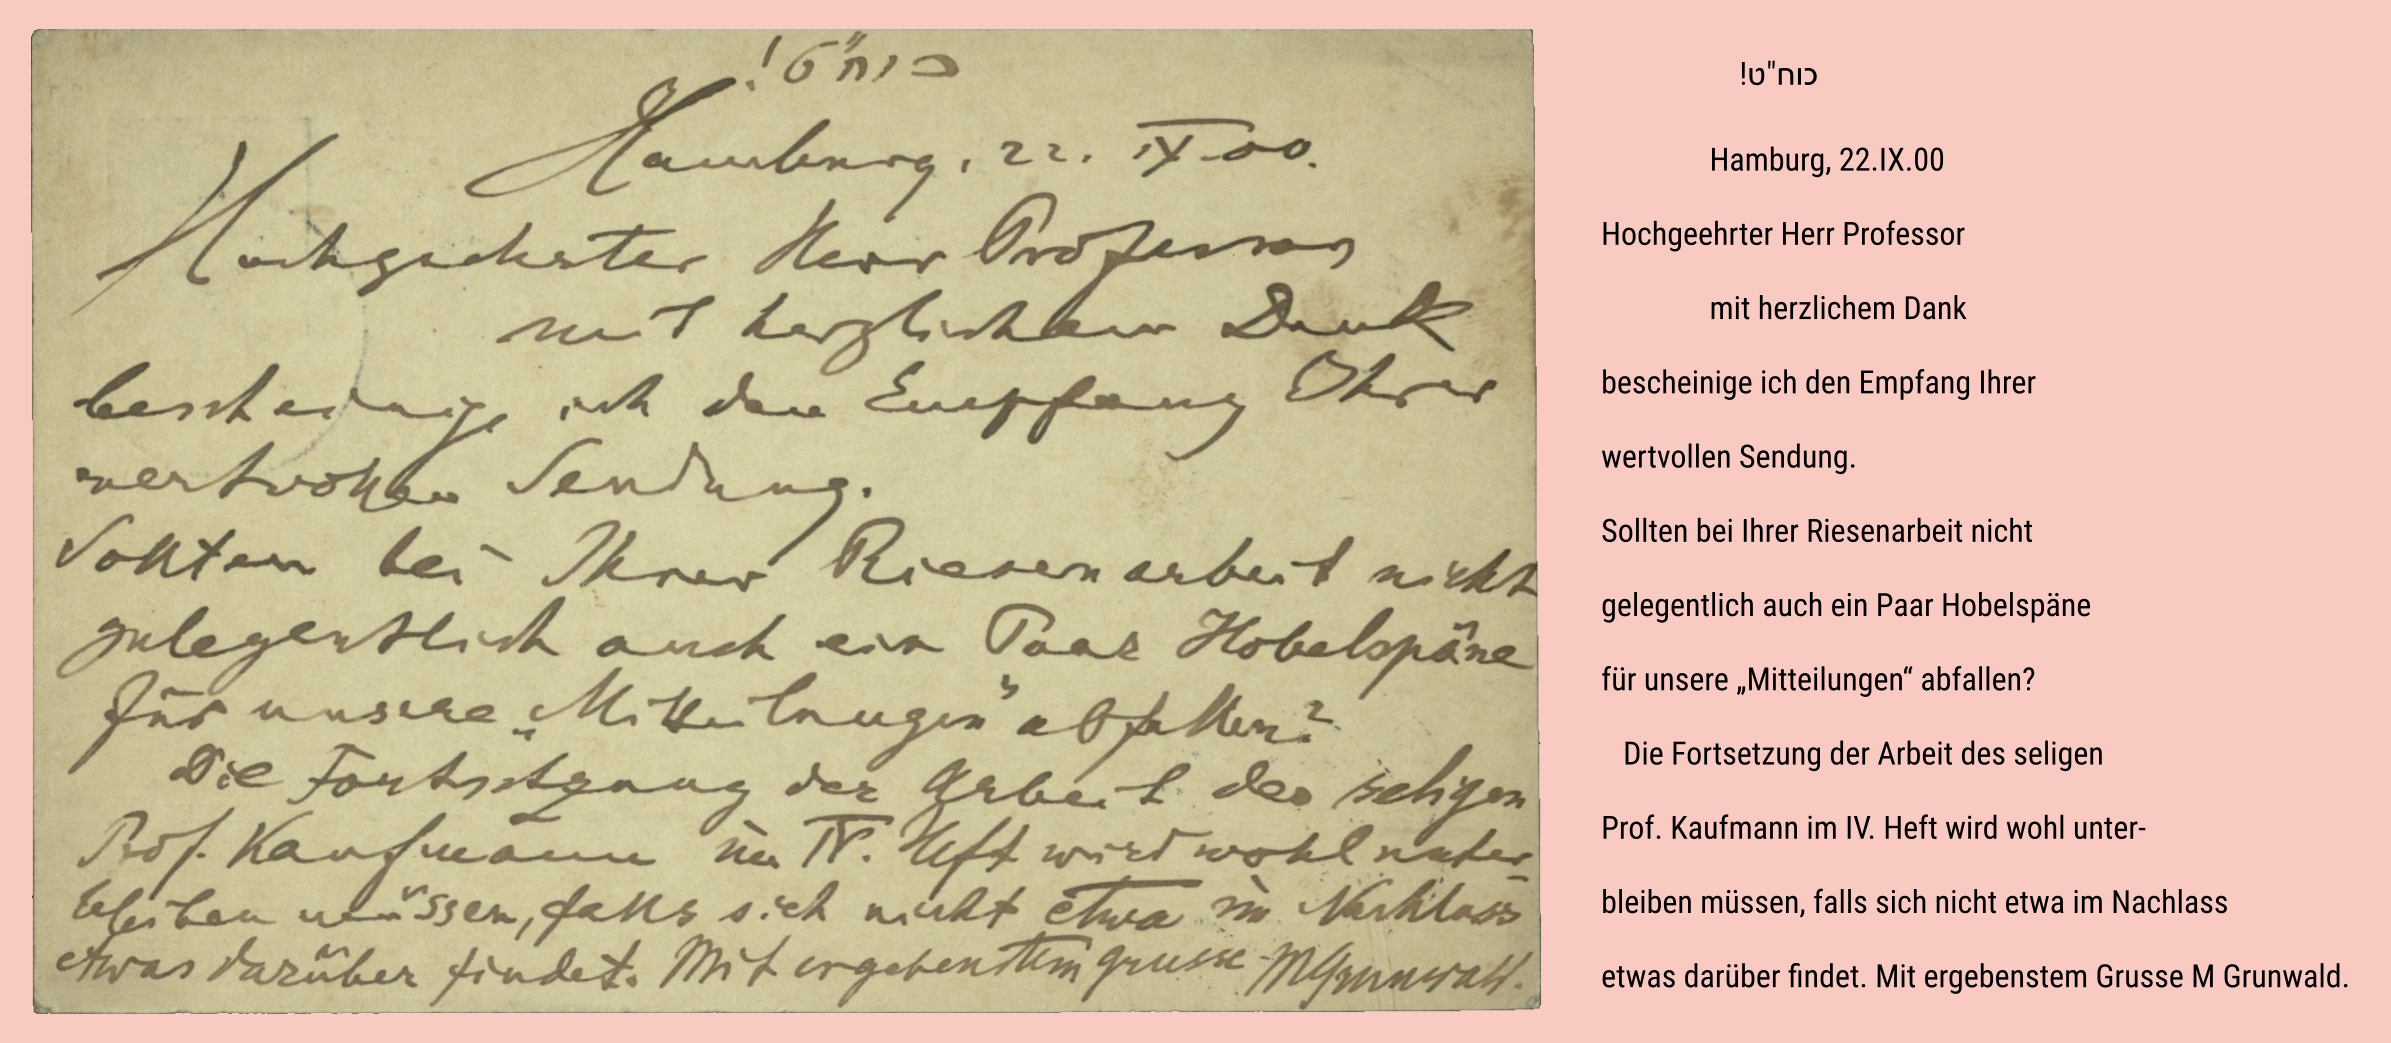 כוח"ט!
Hamburg, 22.IX.00.
Hochgeehrter Herr Professor
mit herzlichem Dank
bescheinige ich den Empfang Ihrer
wertvollen Sendung.
Sollten bei Ihrer Riesenarbeit nicht
gelegentlich auch ein Paar Hobelspäne
für unsere „Mitteilungen“ abfallen?
Die Fortsetzung der Arbeit des seligen
Prof. Kaufmann im IV. Heft wird wohl unter-
bleiben müssen, falls sich nicht etwa im Nachlass
etwas darüber findet. Mit ergebenstem Grusse M Grunwald.
כוח"ט!
Hamburg, 22.IX.00
Hochgeehrter Herr Professor
mit herzlichem Dank
bescheinige ich den Empfang Ihrer
wertvollen Sendung.
Sollten bei Ihrer Riesenarbeit nicht
gelegentlich auch ein Paar Hobelspäne
für unsere „Mitteilungen“ abfallen?
Die Fortsetzung der Arbeit des seligen
Prof. Kaufmann im IV. Heft wird wohl unter-
bleiben müssen, falls sich nicht etwa im Nachlass
etwas darüber findet. Mit ergebenstem Grusse M Grunwald.